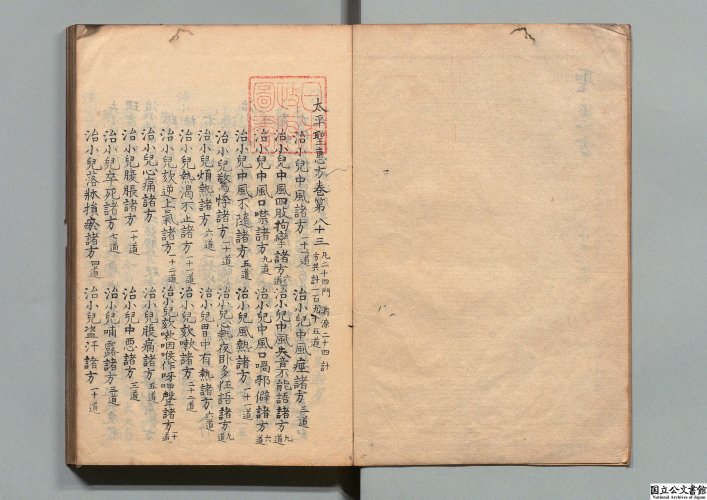 太平聖惠方卷第八十三 凡二十四門 病源二十四計 方共計一百九十五道
治小兒中風諸方十一道 治小兒中風痙諸方三道
治小兒中風四肢拘攣諸方六道 治小兒中風失音不能語諸方九道
治小兒中風口噤諸方九道 治小兒中風口喎邪僻諸方六道
治小兒中風不隨諸方五道 治小兒風熱諸方十一道
治小兒驚悸諸方十一道 治小兒心熱夜卧多狂語諸方九道
治小兒煩熱諸方六道 治小兒胷中有熱諸方六道
治小兒熱渴不止諸方十一道 治小兒欬嗽諸方二十二道
治小兒欬逆上氣諸方十二道 治小兒欬嗽咽喉作呀呷聲諸方十道
治小兒心痛諸方 治小兒腹痛諸方五道
治小兒腹脹諸方十一道 治小兒中惡諸方三道
治小兒卒死諸方七道 治小兒哺露諸方三道
治小兒落牀損瘀諸方四道 治小兒盗汗諸方十道
国立公文書館
National Archives of Japan